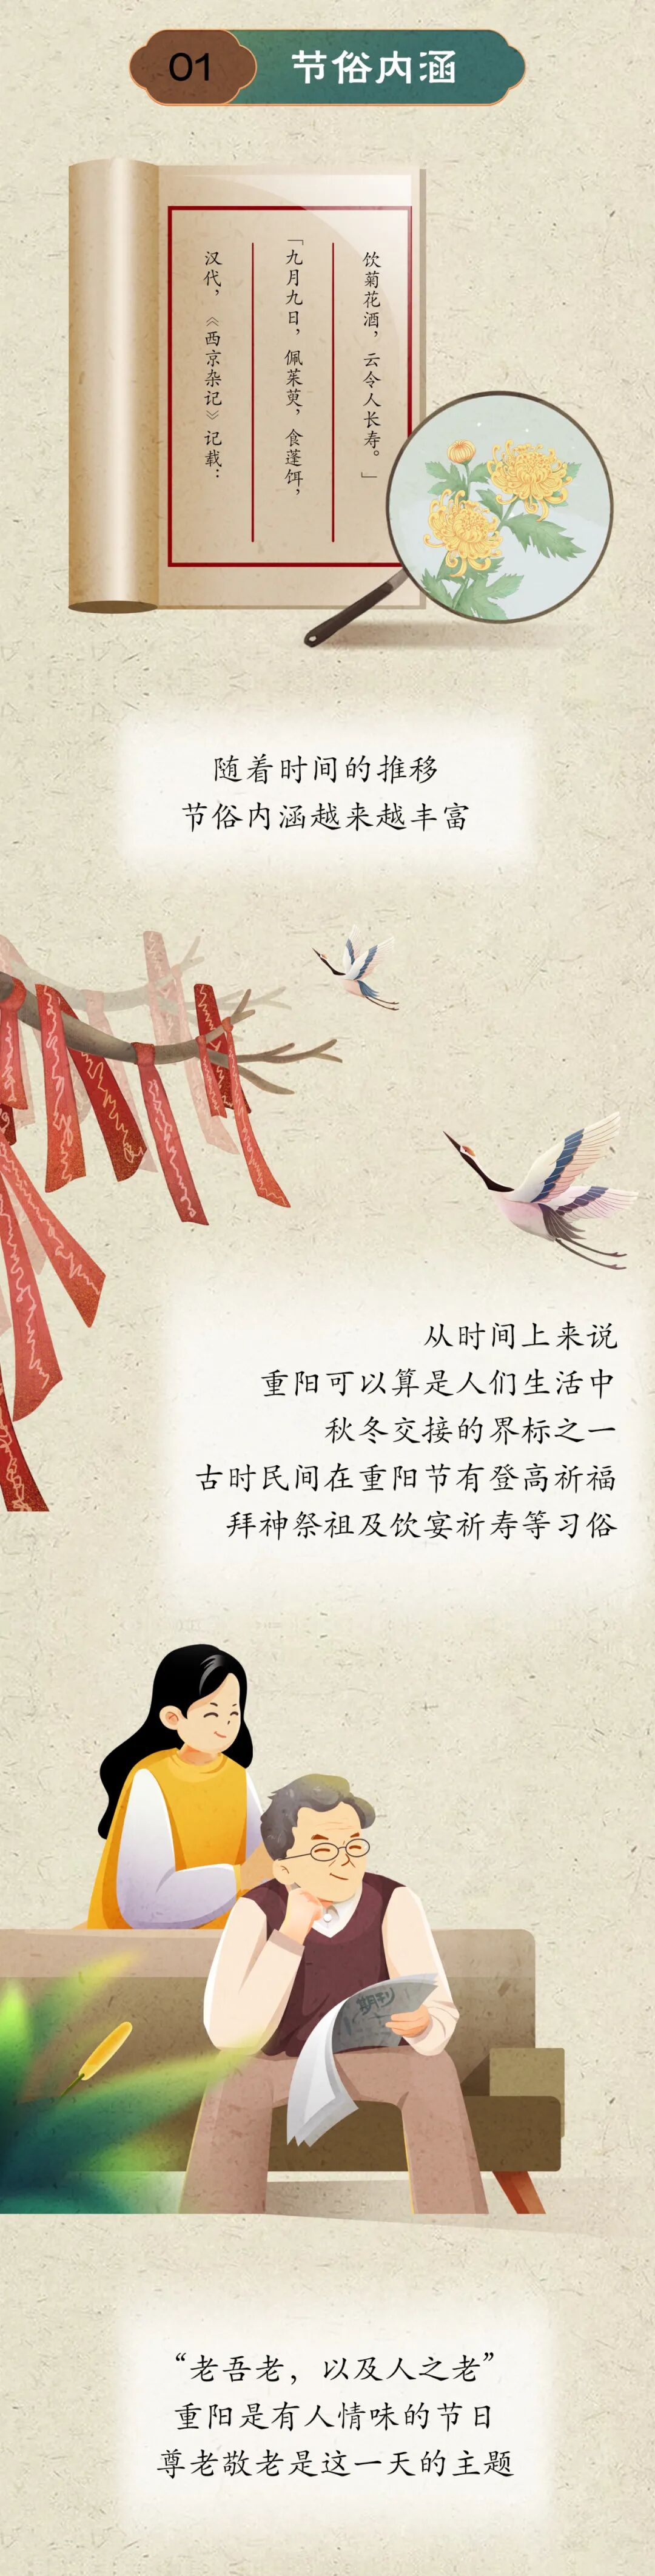 01
节俗内涵
汉代，《西京杂记》记载：
「九月九日，佩茱萸，食蓬饵，
饮菊花酒，云令人长寿。」
随着时间的推移
节俗内涵越来越丰富
从时间上来说
重阳可以算是人们生活中
秋冬交接的界标之一
古时民间在重阳节有登高祈福
拜神祭祖及饮宴祈寿等习俗
期刊
“老吾老，以及人之老”
重阳是有人情味的节日
尊老敬老是这一天的主题